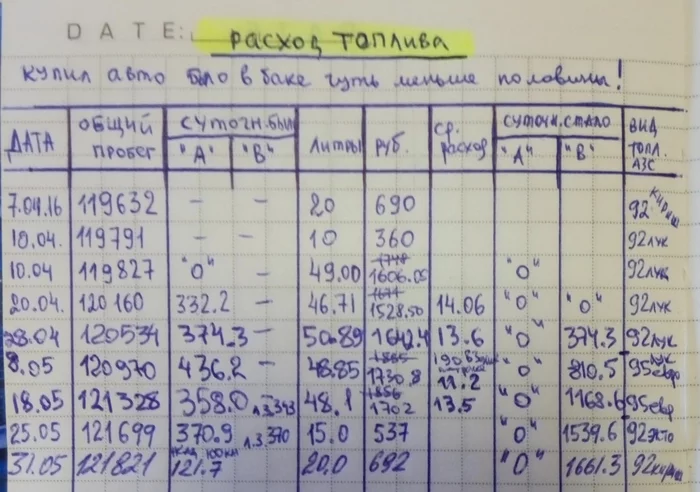 DATE:
РАСХОД ТОПЛИВА
КУПИЛ АВТО БЫЛО В БАКЕ ЧУТЬ МЕНЬШЕ ПОЛОВИНЫ!
ДАТА ОБЩИЙ ПРОБЕГ СУТОЧН.БЫЛ "А" "В" ЛИТРЫ РУБ. СР. РАСХОД СУТОЧН.СТАЛО "А" "В" ВИД ТОПЛ. АЗС
7.04.16 119632 – – 20 690 92 КИРИШ
10.04. 119791 – – 10 360 92ЛУК
10.04 119827 "0" – 49.00 1606.05 "0" 92ЛУК
20.04. 120160 332.2 – 46.71 1528.50 14.06 "0" "0" 92ЛУК
28.04 120534 374.3 – 50.89 1642.4 13.6 "0" 374.3 92ЛУК
8.05 120970 436.2 – 48.85 1730.8 11.2 "0" 810.5 ЛУК 95евро
18.05 121328 358.0 48.1 1702 13.5 "0" 1168.6 95евр
25.05 121699 370.9 15.0 537 "0" 1539.6 92ЭКТО
31.05 121821 121.7 20.0 692 "0" 1661.3 92кириш